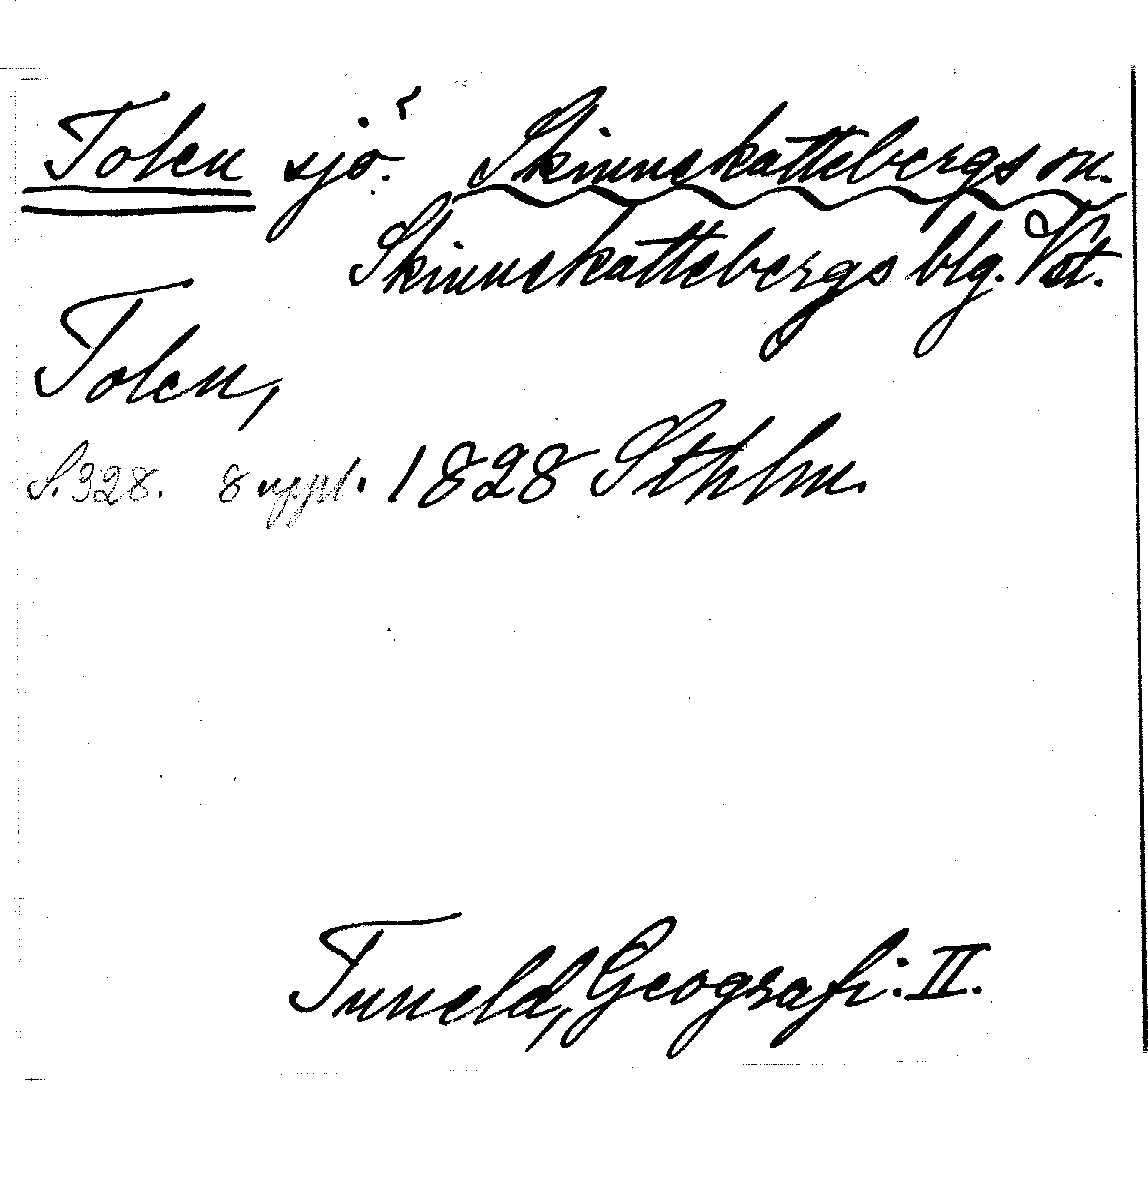 Tolen sjö. Skinnskattebergs sn.
Skinnskattebergs blg. Vst.
Tolen,
S. 328. 8 uppl. 1828 Sthlm.
Tuneld, Geografi. II.